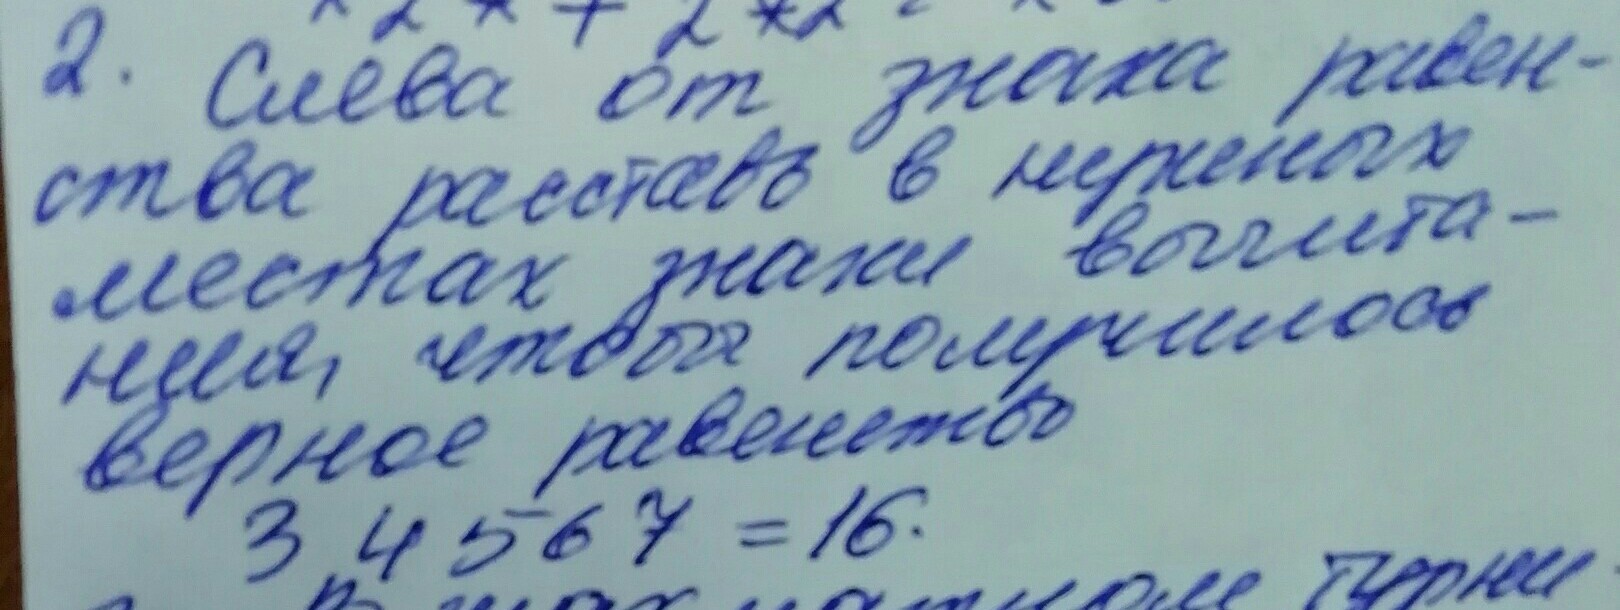 2. Слева от знака равен-
ства расставь в нужных
местах знаки вычита-
ния, чтобы получилось
верное равенство
3 4 5 6 7 = 16.